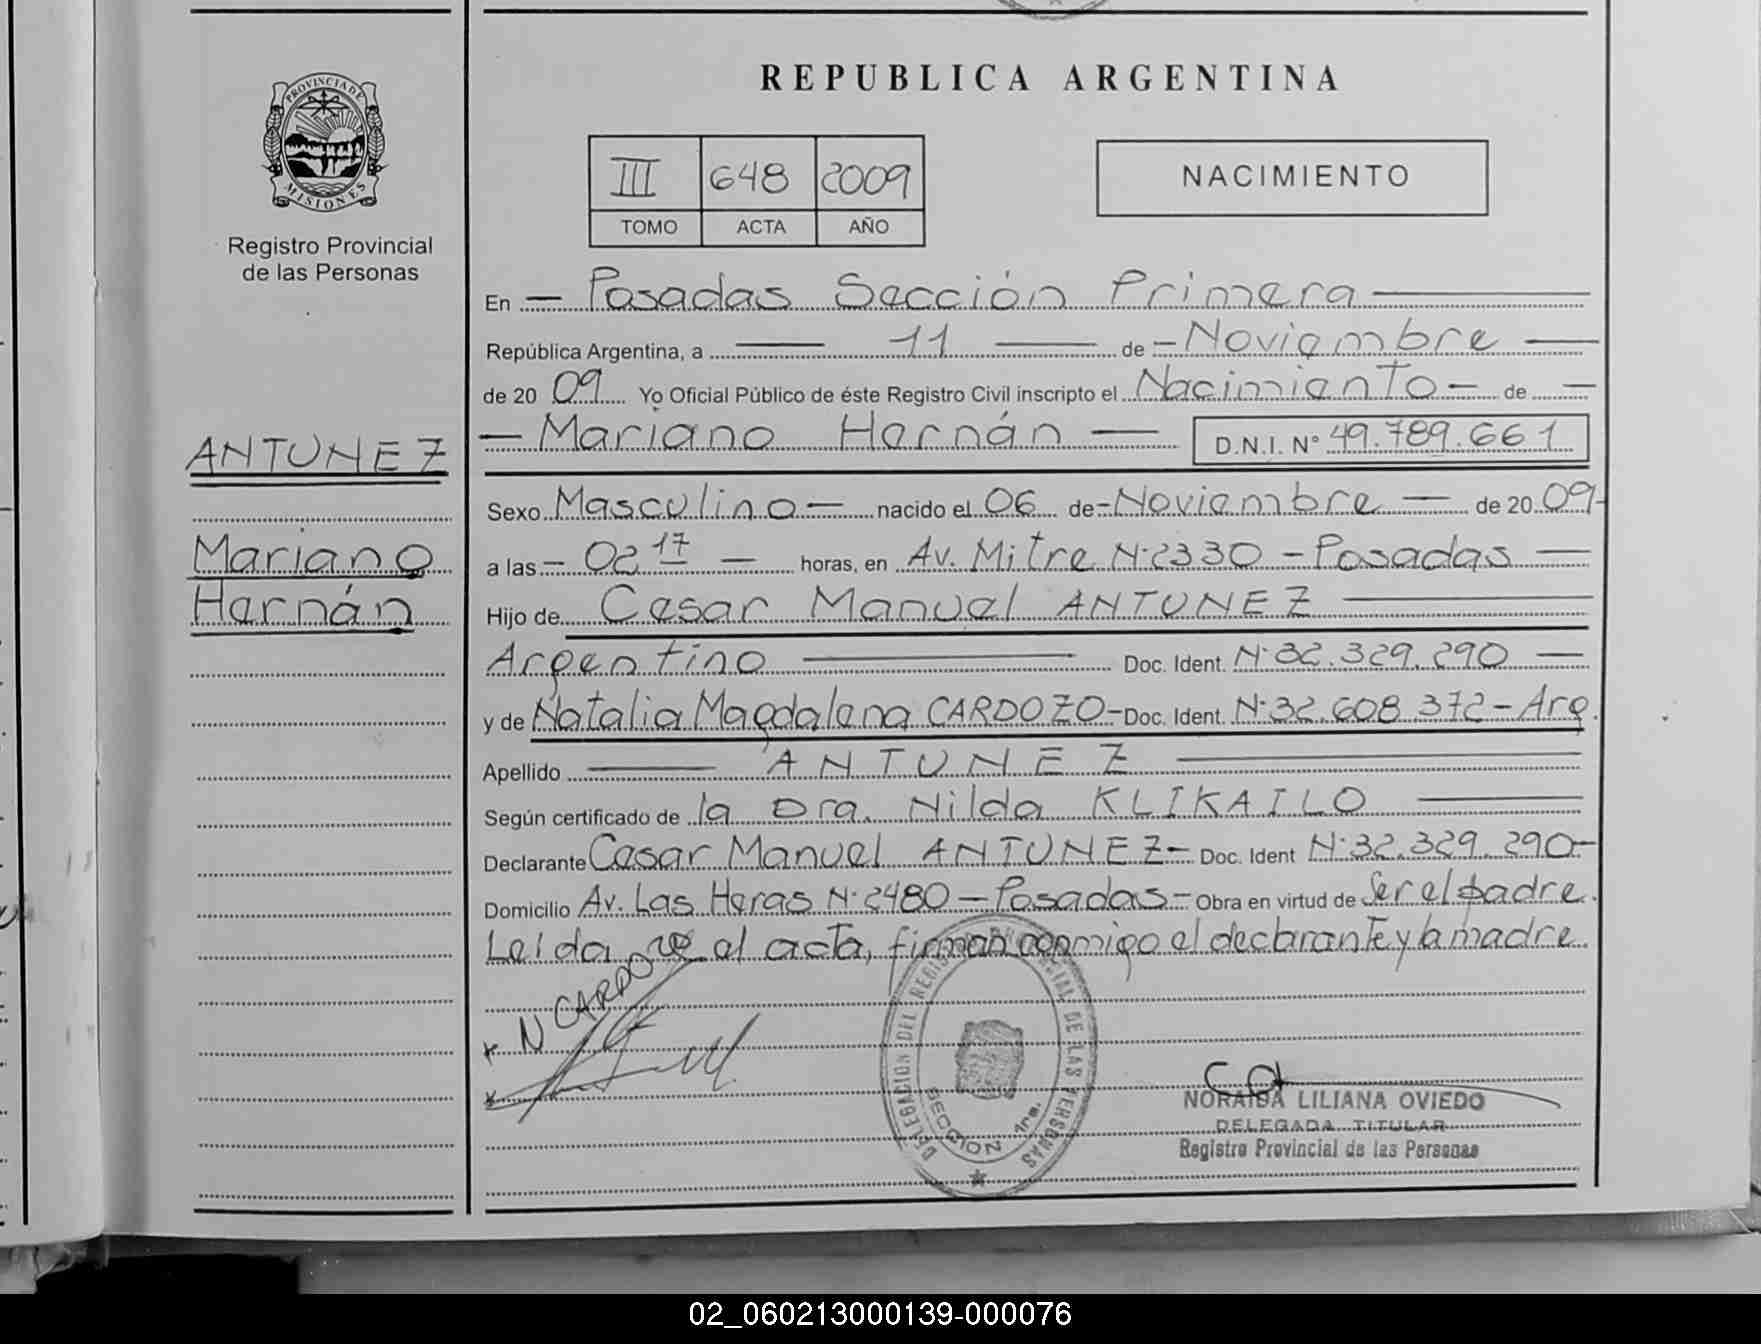 PROVINCIA DE
MISIONES
Registro Provincial
de las Personas
ANTUNEZ
Mariano
Hernán
REPUBLICA ARGENTINA
III 648 2009
TOMO ACTA AÑO
NACIMIENTO
En — Posadas Sección Primera —
República Argentina, a — 11 — de — Noviembre —
de 20 09 Yo Oficial Público de éste Registro Civil inscripto el Nacimiento — de —
— Mariano Hernán — D.N.I. N° 49.789.661
Sexo Masculino — nacido el 06 de — Noviembre — de 20 09 -
a las — 02 17 — horas, en Av. Mitre N° 2330 - Posadas —
Hijo de Cesar Manuel ANTUNEZ —
Argentino — Doc. Ident. N° 32.329.290 —
y de Natalia Magdalena CARDOZO - Doc. Ident. N° 32.608.372 - Arg.
Apellido — ANTUNEZ —
Según certificado de la Dra. Nilda KLIKAILO —
Declarante Cesar Manuel ANTUNEZ - Doc. Ident N° 32.329.290 -
Domicilio Av. Las Heras N° 2480 - Posadas - Obra en virtud de Ser el padre.
Leida el acta, firman conmigo el declarante y la madre
x N CARDOZO
x
DELEGACION DEL REGISTRO PROVINCIAL DE LAS PERSONAS
SECCION 1ra.
NORAIDA LILIANA OVIEDO
DELEGADA TITULAR
Registro Provincial de las Personas
02_060213000139-000076